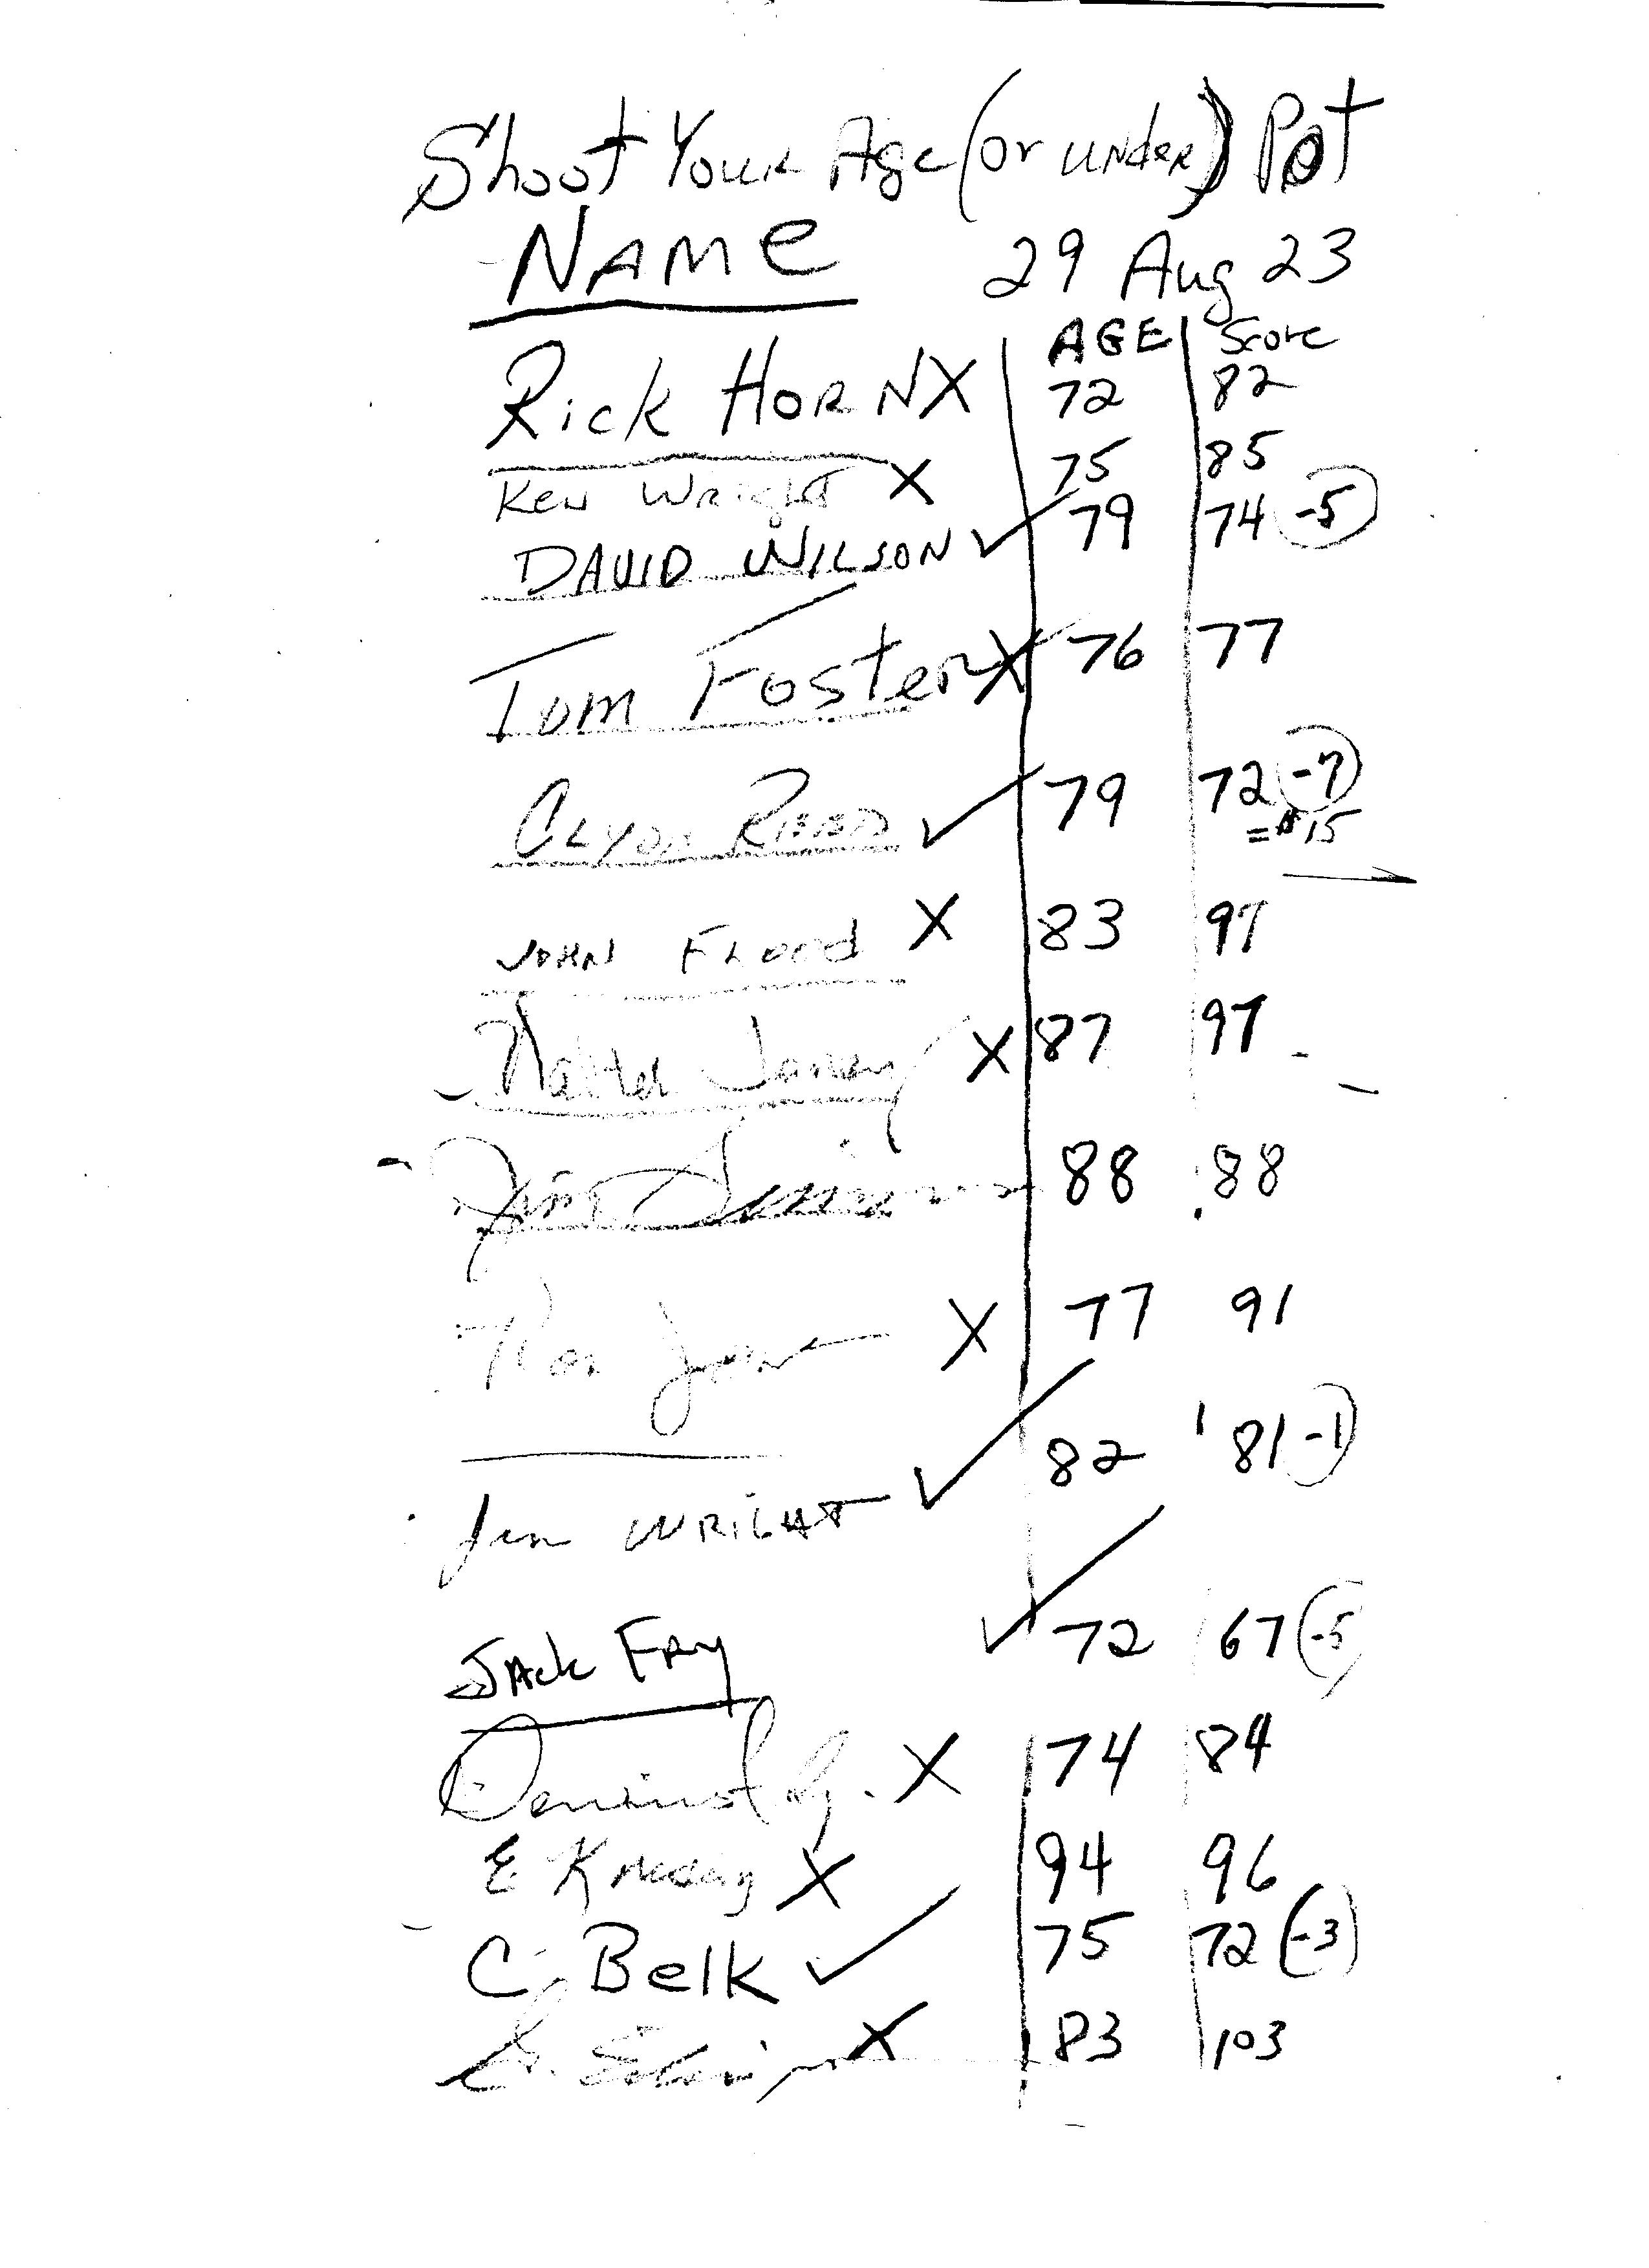 Shoot Your Age (or under) Pot
NAME 29 Aug 23
AGE Score
Rick HORN X 72 82
Ken Wright X 75 85
DAVID WILSON ✓ 79 74 -5
Tom Foster X 76 77
79 72 -7
= $15
JOHN Flood X 83 97
X 87 97
Jim 88 88
Ron X 77 91
Jim WRIGHT ✓ 82 81 -1
Jack Fry ✓ 72 67 (-5
X 74 84
E X 94 96
C. Belk ✓ 75 72 (-3)
X 83 103